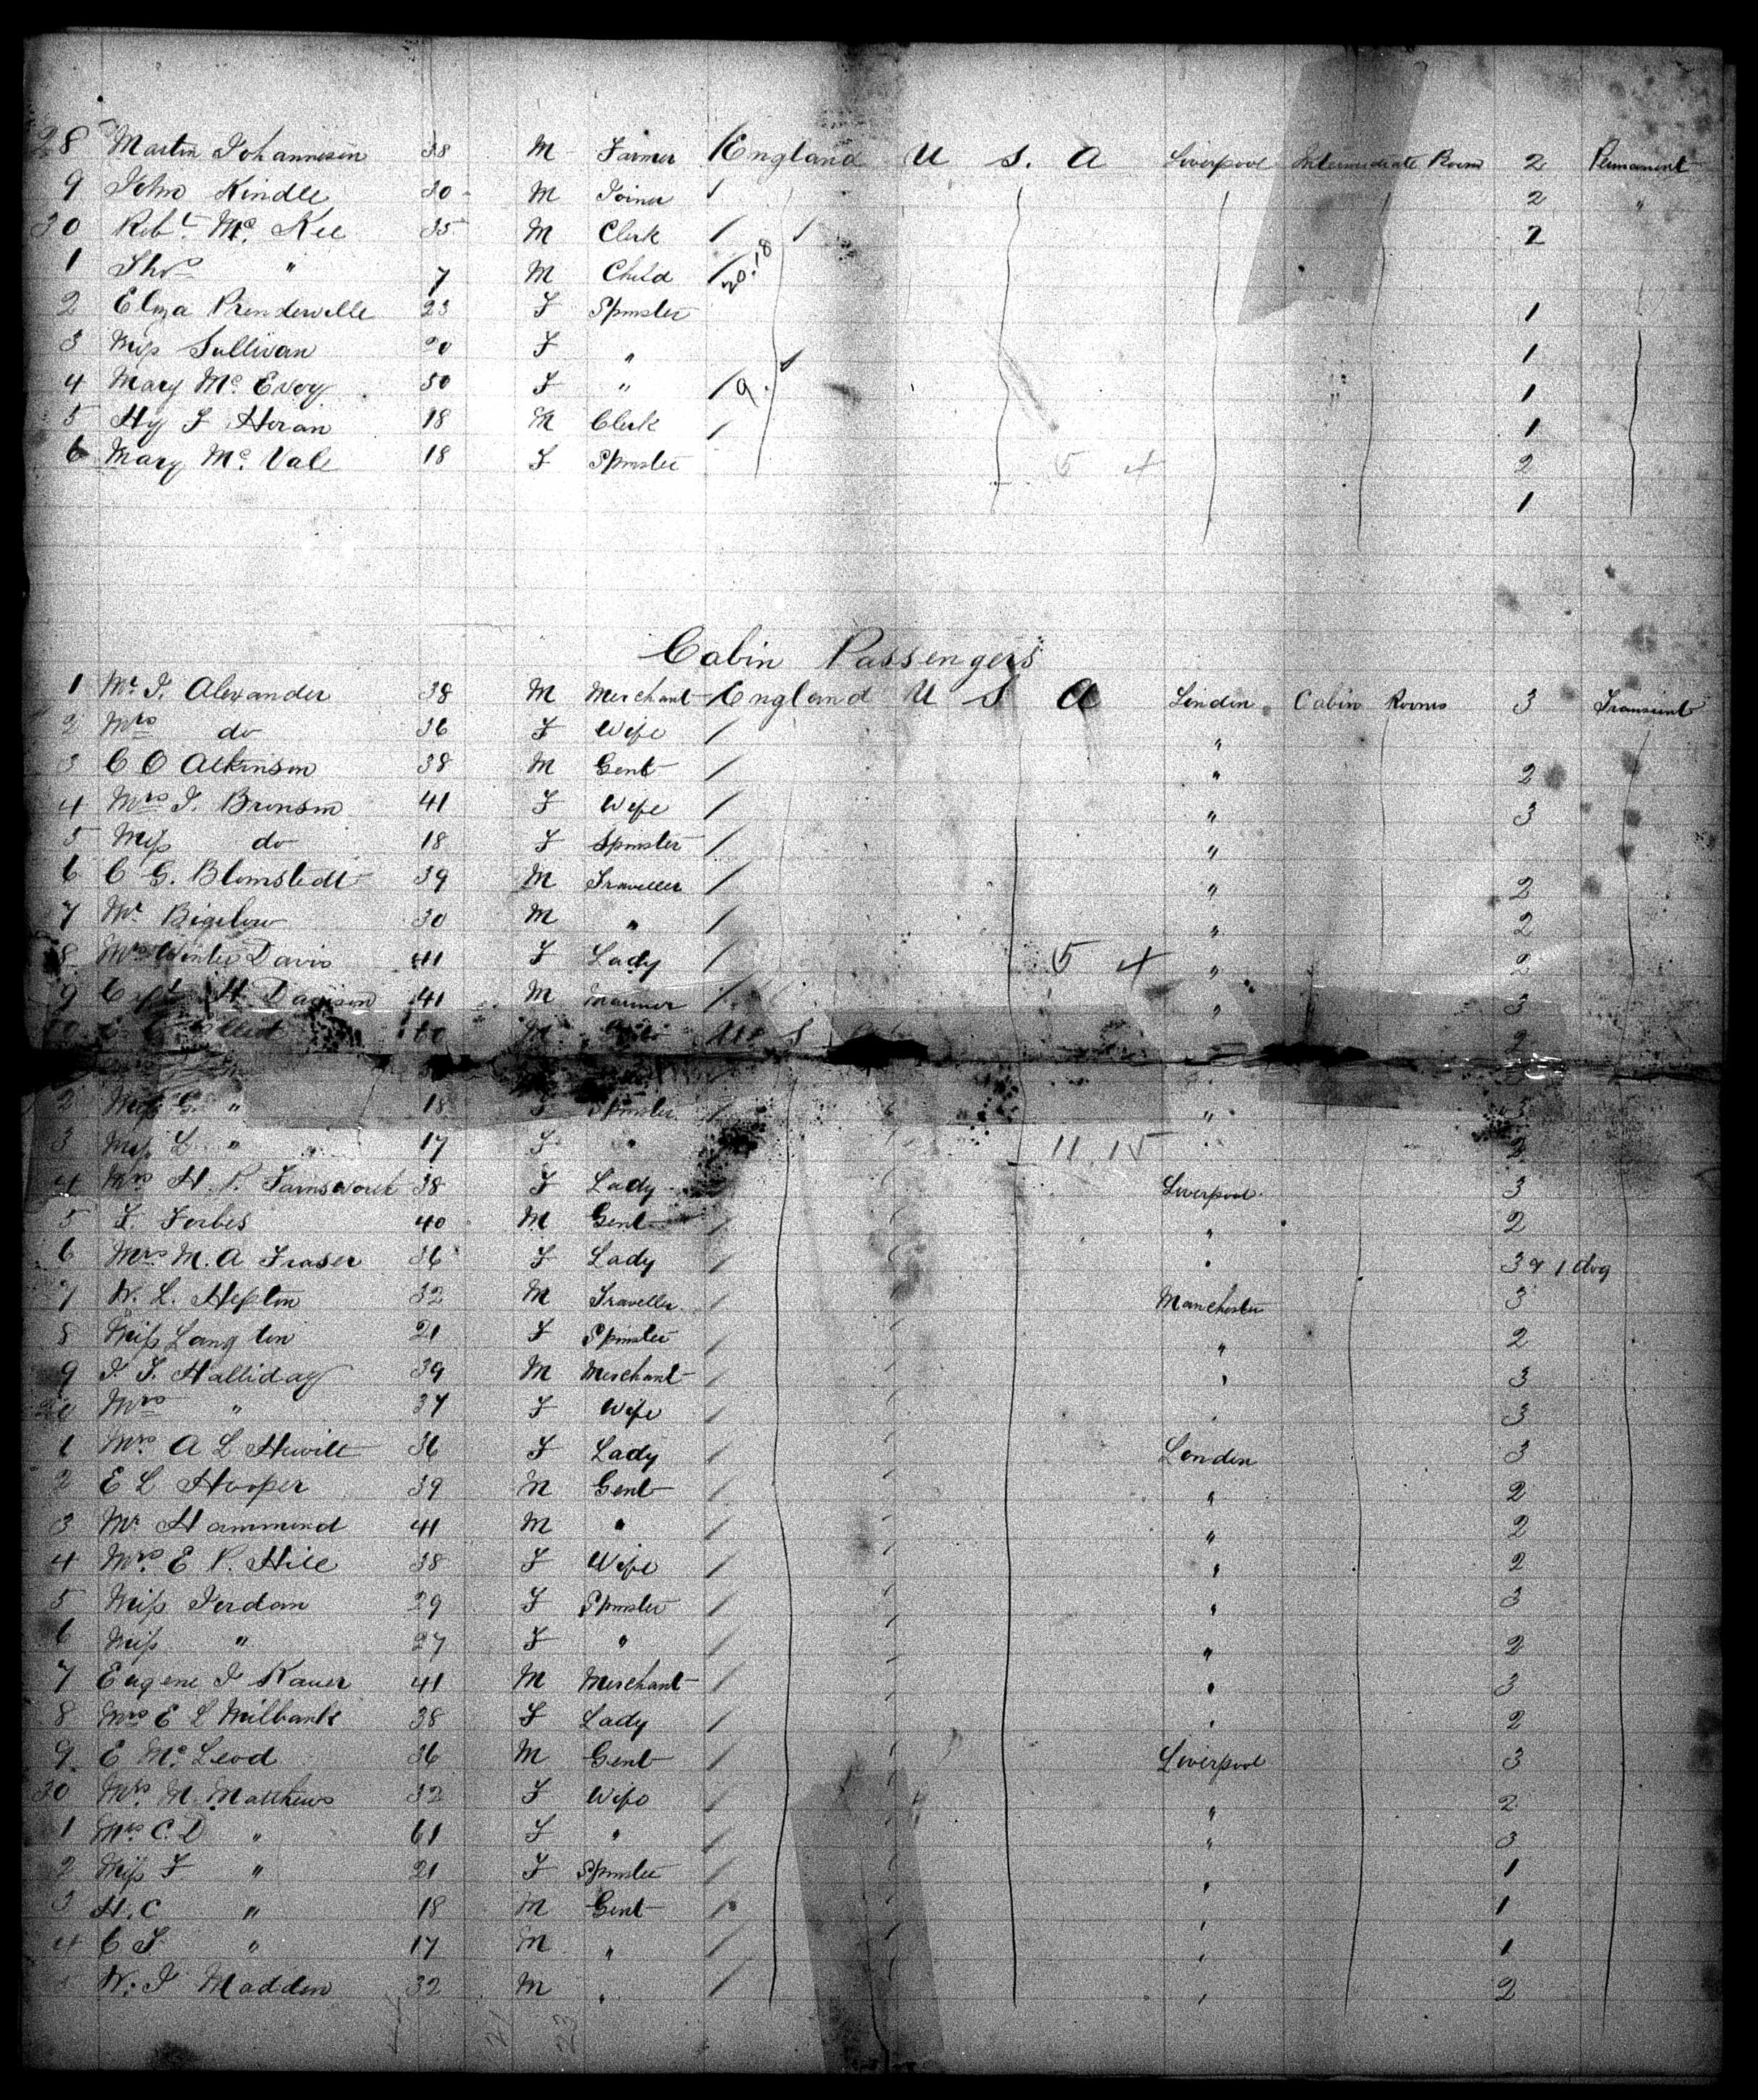 28 Martin Johannesen 38 M Farmer England U S. A Liverpool Intermediate Room 2 Permanent
9 John Kindle 30 M Joiner 2 "
30 Robt. Mc. Kee 35 M Clerk 2
1 Thos " 7 M Child 20.18
2 Eliza Prenderville 23 F Spinster 1
3 Miss Sullivan 20 F " 1
4 Mary Mc. Evoy 50 F " 9. 1
5 Hy F Horan 18 M Clerk 1
6 Mary Mc. Vale 18 F Spinster 5 4 2
1
Cabin Passengers
1 Mr J. Alexander 38 M Merchant England U S A London Cabin Rooms 3 Transient
2 Mrs do 36 F Wife "
3 C O Atkinson 38 M Gent " 2
4 Mrs J. Bronson 41 F Wife " 3
5 Miss do 18 F Spinster "
6 C G. Blomstedt 39 M Traveller " 2
7 Mr Bigelow 30 M " " 2
8 Mrs Winter Davis 41 F Lady 5 4 " 2
9 Capt H. Davison 41 M Mariner " 3
10 60 M S 2
2 Miss G. " 18 F Spinster " 3
3 Miss L " 17 F " 11 15 " 2
4 Mrs H. P. Farnsworth 38 F Lady Liverpool 3
5 F. Forbes 40 M Gent " 2
6 Mrs M. A Fraser 36 F Lady " 3 & 1 dog
7 W. L. Hepton 32 M Traveller Manchester 3
8 Miss Langton 21 F Spinster " 2
9 J. T. Halliday 39 M Merchant " 3
20 Mrs " 37 F Wife " 3
1 Mrs A L Hewitt 36 F Lady London 3
2 E L Hooper 39 M Gent " 2
3 Mr Hammond 41 M " " 2
4 Mrs E P. Hill 38 F Wife " 2
5 Miss Jordan 29 F Spinster " 3
6 Miss " 27 F " " 2
7 Eugene J 41 M Merchant " 3
8 Mrs E L Milbank 38 F Lady " 2
9 E Mc. Leod 36 M Gent Liverpool 3
30 Mrs M. Matthews 32 F Wife " 2
1 Mrs C. D " 61 F " " 3
2 Miss F " 21 F Spinster " 1
3 H. C " 18 M Gent " 1
4 C F " 17 M " " 1
5 W. J Madden 32 M " " 2